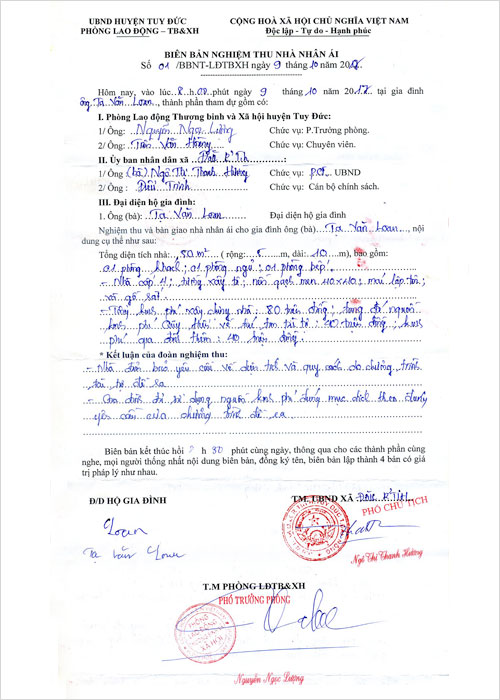 UBND HUYỆN TUY ĐỨC
PHÒNG LAO ĐỘNG – TB&XH
CỘNG HOÀ XÃ HỘI CHỦ NGHĨA VIỆT NAM
Độc lập - Tự do - Hạnh phúc
BIÊN BẢN NGHIỆM THU NHÀ NHÂN ÁI
Số 01 /BBNT-LĐTBXH ngày 9 tháng 10 năm 2017
Hôm nay, vào lúc..8.h.00.phút ngày 9 tháng 10 năm 2017, tại gia đình
ông.Tạ Văn Loan., thành phần tham dự gồm có:
I. Phòng Lao động Thương binh và Xã hội huyện Tuy Đức:
1/ Ông: Nguyễn Ngọc Lượng Chức vụ: P.Trưởng phòng.
2/ Ông: Trần Văn Chức vụ: Chuyên viên.
II. Ủy ban nhân dân xã Đắk R'Tih :
1/ Ông (bà) Ngô Thị Thanh Hường Chức vụ: P.CT UBND
2/ Ông: Điểu Trinh Chức vụ: Cán bộ chính sách.
III. Đại diện hộ gia đình:
1. Ông (bà): Tạ Văn Loan Đại diện hộ gia đình
Nghiệm thu và bàn giao nhà nhân ái cho gia đình ông (bà) Tạ Văn Loan, nội
dung cụ thể như sau:
Tổng diện tích nhà: 50 m² ( rộng: 5 m, dài: 10 m), bao gồm:
01 phòng khách; 01 phòng ngủ; 01 phòng bếp.
- Nhà cấp 4; tường xây tô; nền gạch men 40x40; mái lợp tôn;
sắt
- Tổng kinh phí xây dựng nhà: 80 triệu đồng; trong đó nguồn
kinh phí Quỹ tài trợ: 40 triệu đồng; kinh
phí gia đình thêm: 40 triệu đồng.
* Kết luận của đoàn nghiệm thu:
- Nhà đảm bảo yêu cầu về diện tích và quy cách do chương trình
tài trợ đề ra
- Gia đình đã sử dụng nguồn kinh phí đúng mục đích theo đúng
yêu cầu của chương trình đề ra
Biên bản kết thúc hồi h 30 phút cùng ngày, thông qua cho các thành phần cùng
nghe, mọi người thống nhất nội dung biên bản, đồng ký tên, biên bản lập thành 4 bản có giá
trị pháp lý như nhau.
Đ/D HỘ GIA ĐÌNH
TM. UBND XÃ Đắk R'Tih
PHÓ CHỦ TỊCH
Loan
Tạ Văn Loan
Ngô Thị Thanh Hường
T.M PHÒNG LĐTB&XH
PHÓ TRƯỞNG PHÒNG
Nguyễn Ngọc Lượng